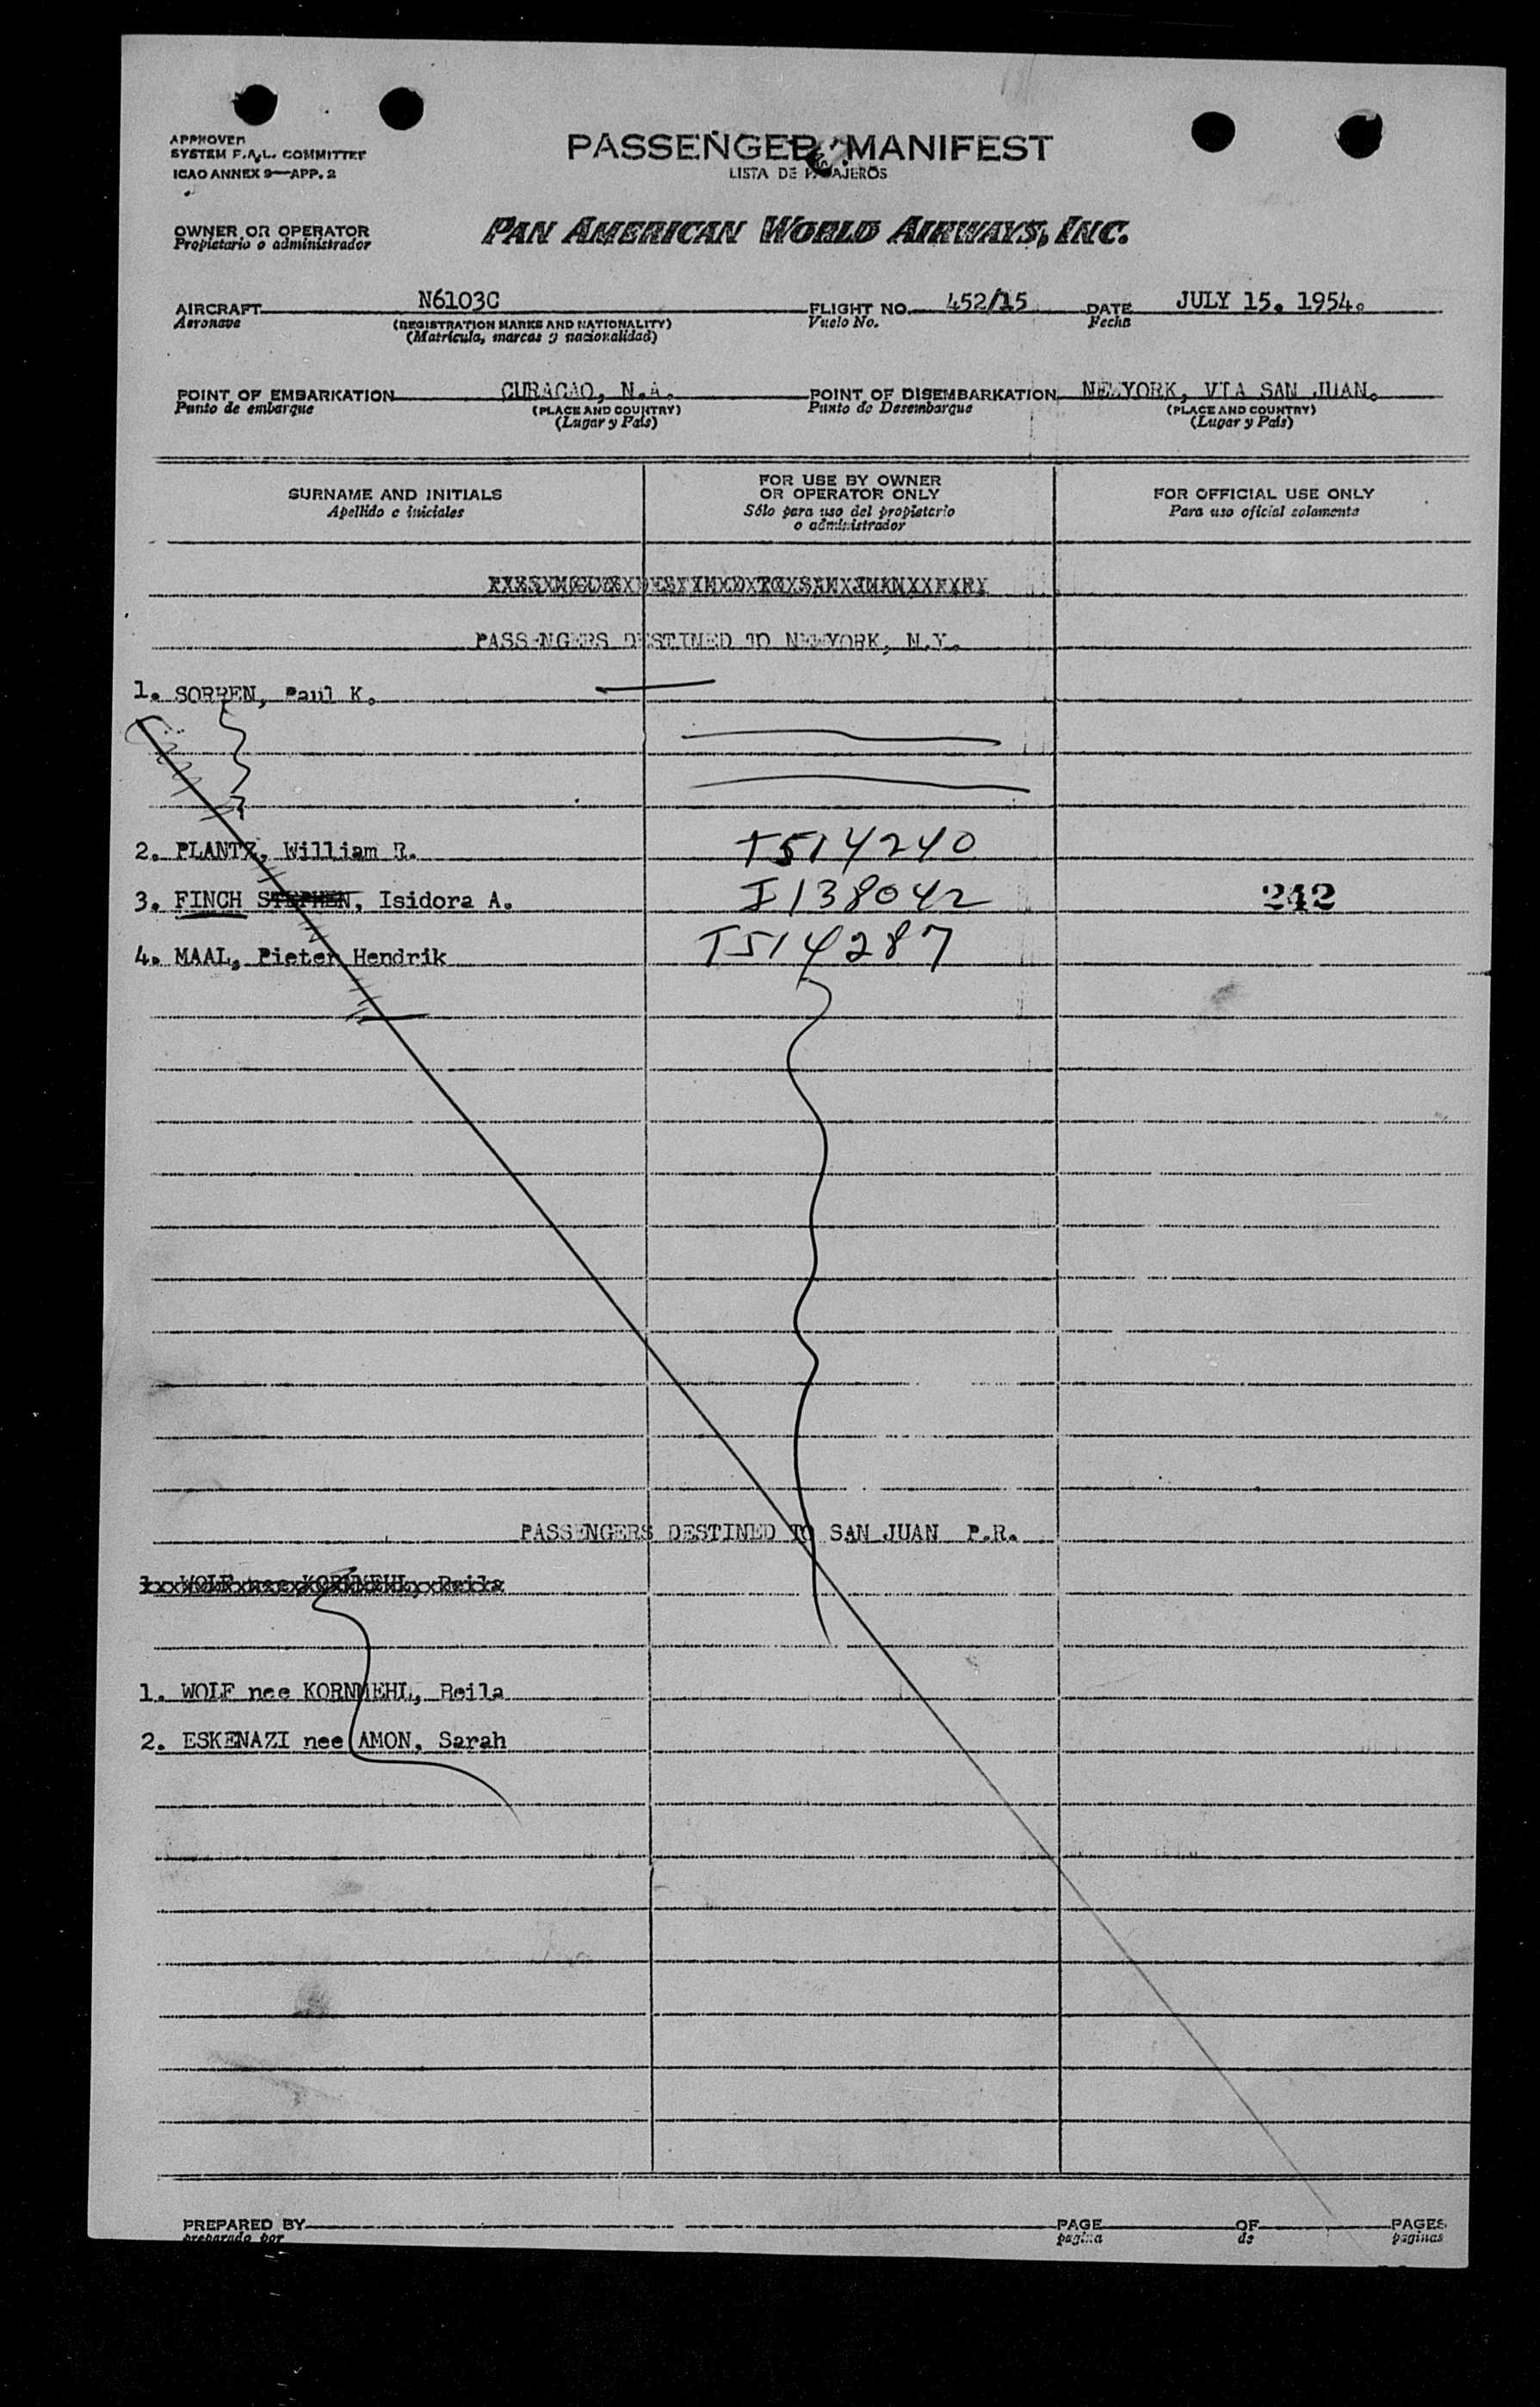 APPROVED
SYSTEM F.A.L. COMMITTEE
ICAO ANNEX 9—APP. 2
PASSENGER MANIFEST
LISTA DE PASAJEROS
OWNER OR OPERATOR
Propietario o administrador
PAN AMERICAN WORLD AIRWAYS, INC.
AIRCRAFT N6103C FLIGHT NO. 452/15 DATE JULY 15. 1954.
Aeronave (REGISTRATION MARKS AND NATIONALITY) Vuelo No. Fecha
(Matricula, marcas y nacionalidad)
POINT OF EMBARKATION CURACAO, N.A. POINT OF DISEMBARKATION NEWYORK, VIA SAN JUAN.
Punto de embarque (PLACE AND COUNTRY) Punto de Desembarque (PLACE AND COUNTRY)
(Lugar y País) (Lugar y País)
SURNAME AND INITIALS
Apellido e iniciales
FOR USE BY OWNER
OR OPERATOR ONLY
Sólo para uso del propietario
o administrador
FOR OFFICIAL USE ONLY
Para uso oficial solamente
PASSENGERS DESTINED TO NEWYORK, N.Y.
1. SORREN, Paul K.
2. PLANTZ, William R. T514240
3. FINCH STEPHEN, Isidora A. I138042 242
4. MAAL, Pieter Hendrik T514287
PASSENGERS DESTINED TO SAN JUAN P.R.
WOLF nee KORNMEHL, Reila
1. WOLF nee KORNMEHL, Reila
2. ESKENAZI nee AMON, Sarah
PREPARED BY PAGE OF PAGES
preparado por pagina de paginas